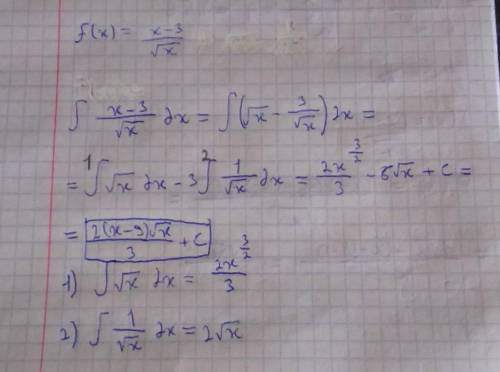 f(x) = \frac{x-3}{\sqrt{x}}
\int \frac{x-3}{\sqrt{x}} dx = \int \left( \sqrt{x} - \frac{3}{\sqrt{x}} \right) dx =
= ^1 \int \sqrt{x} dx - 3 ^2 \int \frac{1}{\sqrt{x}} dx = \frac{2x^{\frac{3}{2}}}{3} - 6\sqrt{x} + C =
= \frac{2(x-9)\sqrt{x}}{3} + C
1) \int \sqrt{x} dx = \frac{2x^{\frac{3}{2}}}{3}
2) \int \frac{1}{\sqrt{x}} dx = 2\sqrt{x}